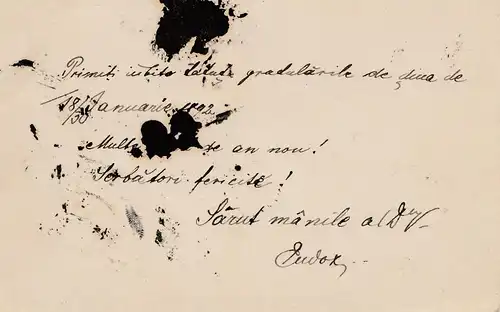 Primiți iubite tătuță gradulările de ziua de
18/30 Januarie 1892
Multe de an nou!
Serbători fericite!
Sărut mânile al Dty
Tudor